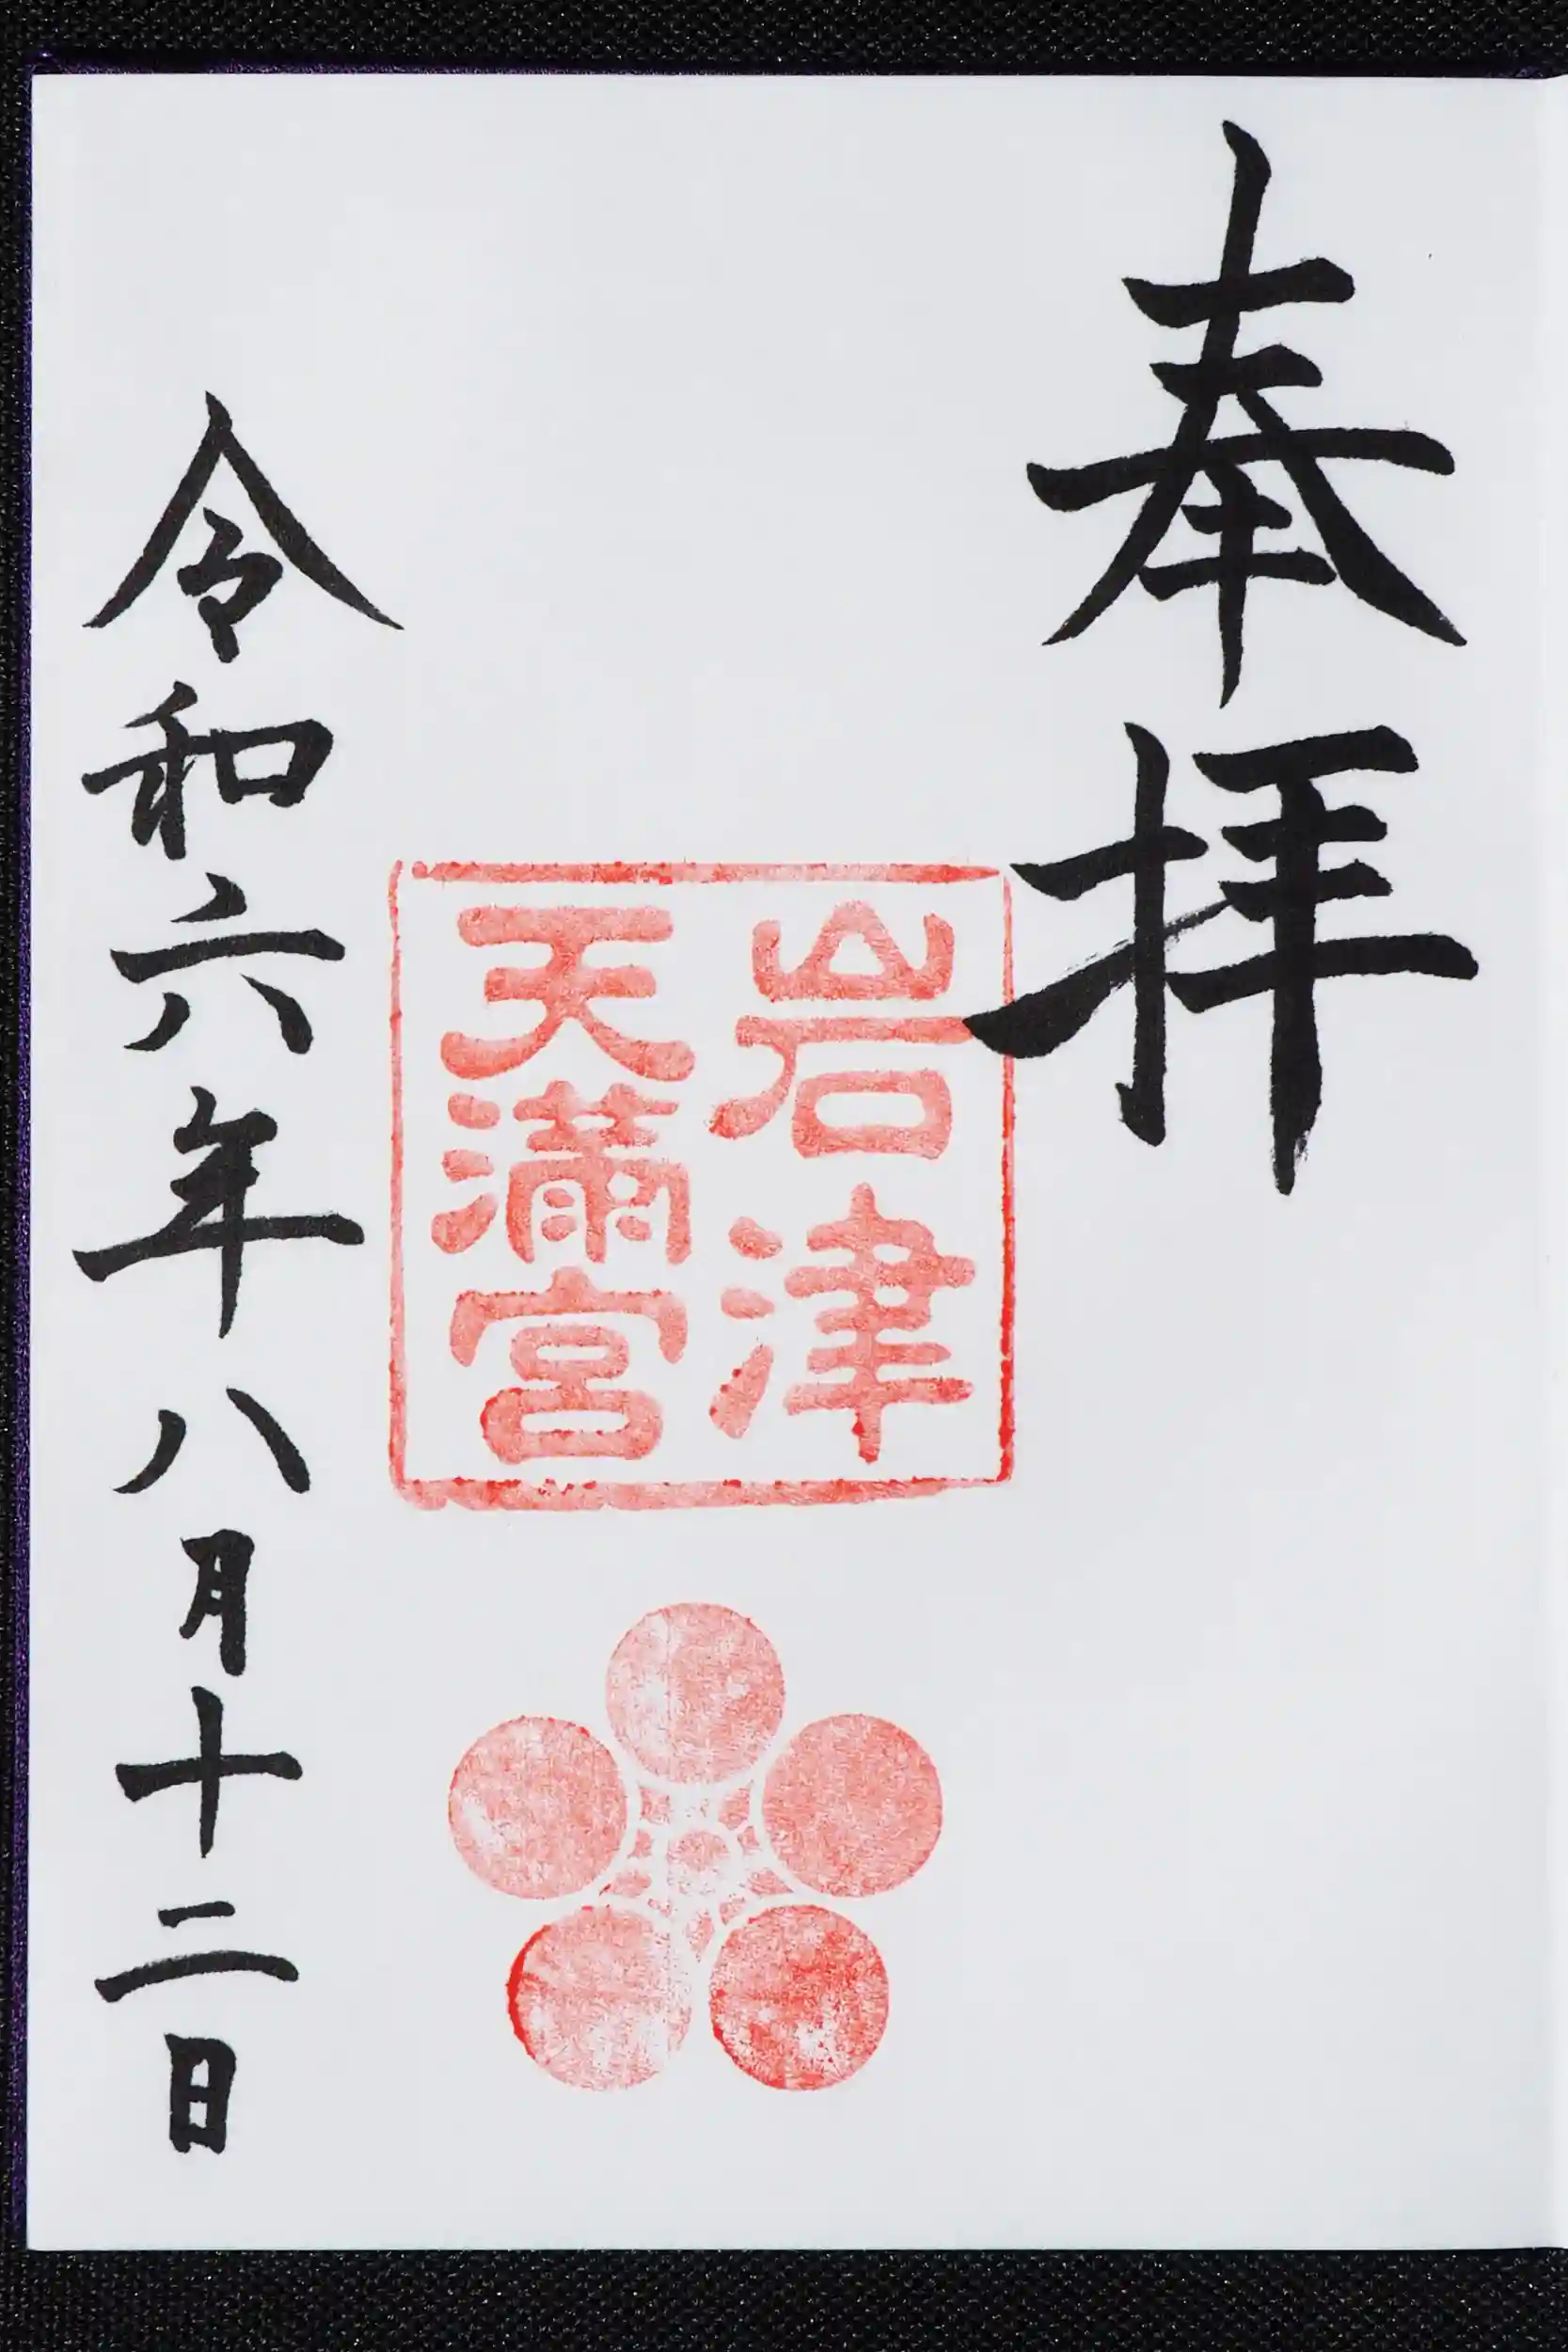 奉拝
岩津
天満宮
令和六年八月十二日